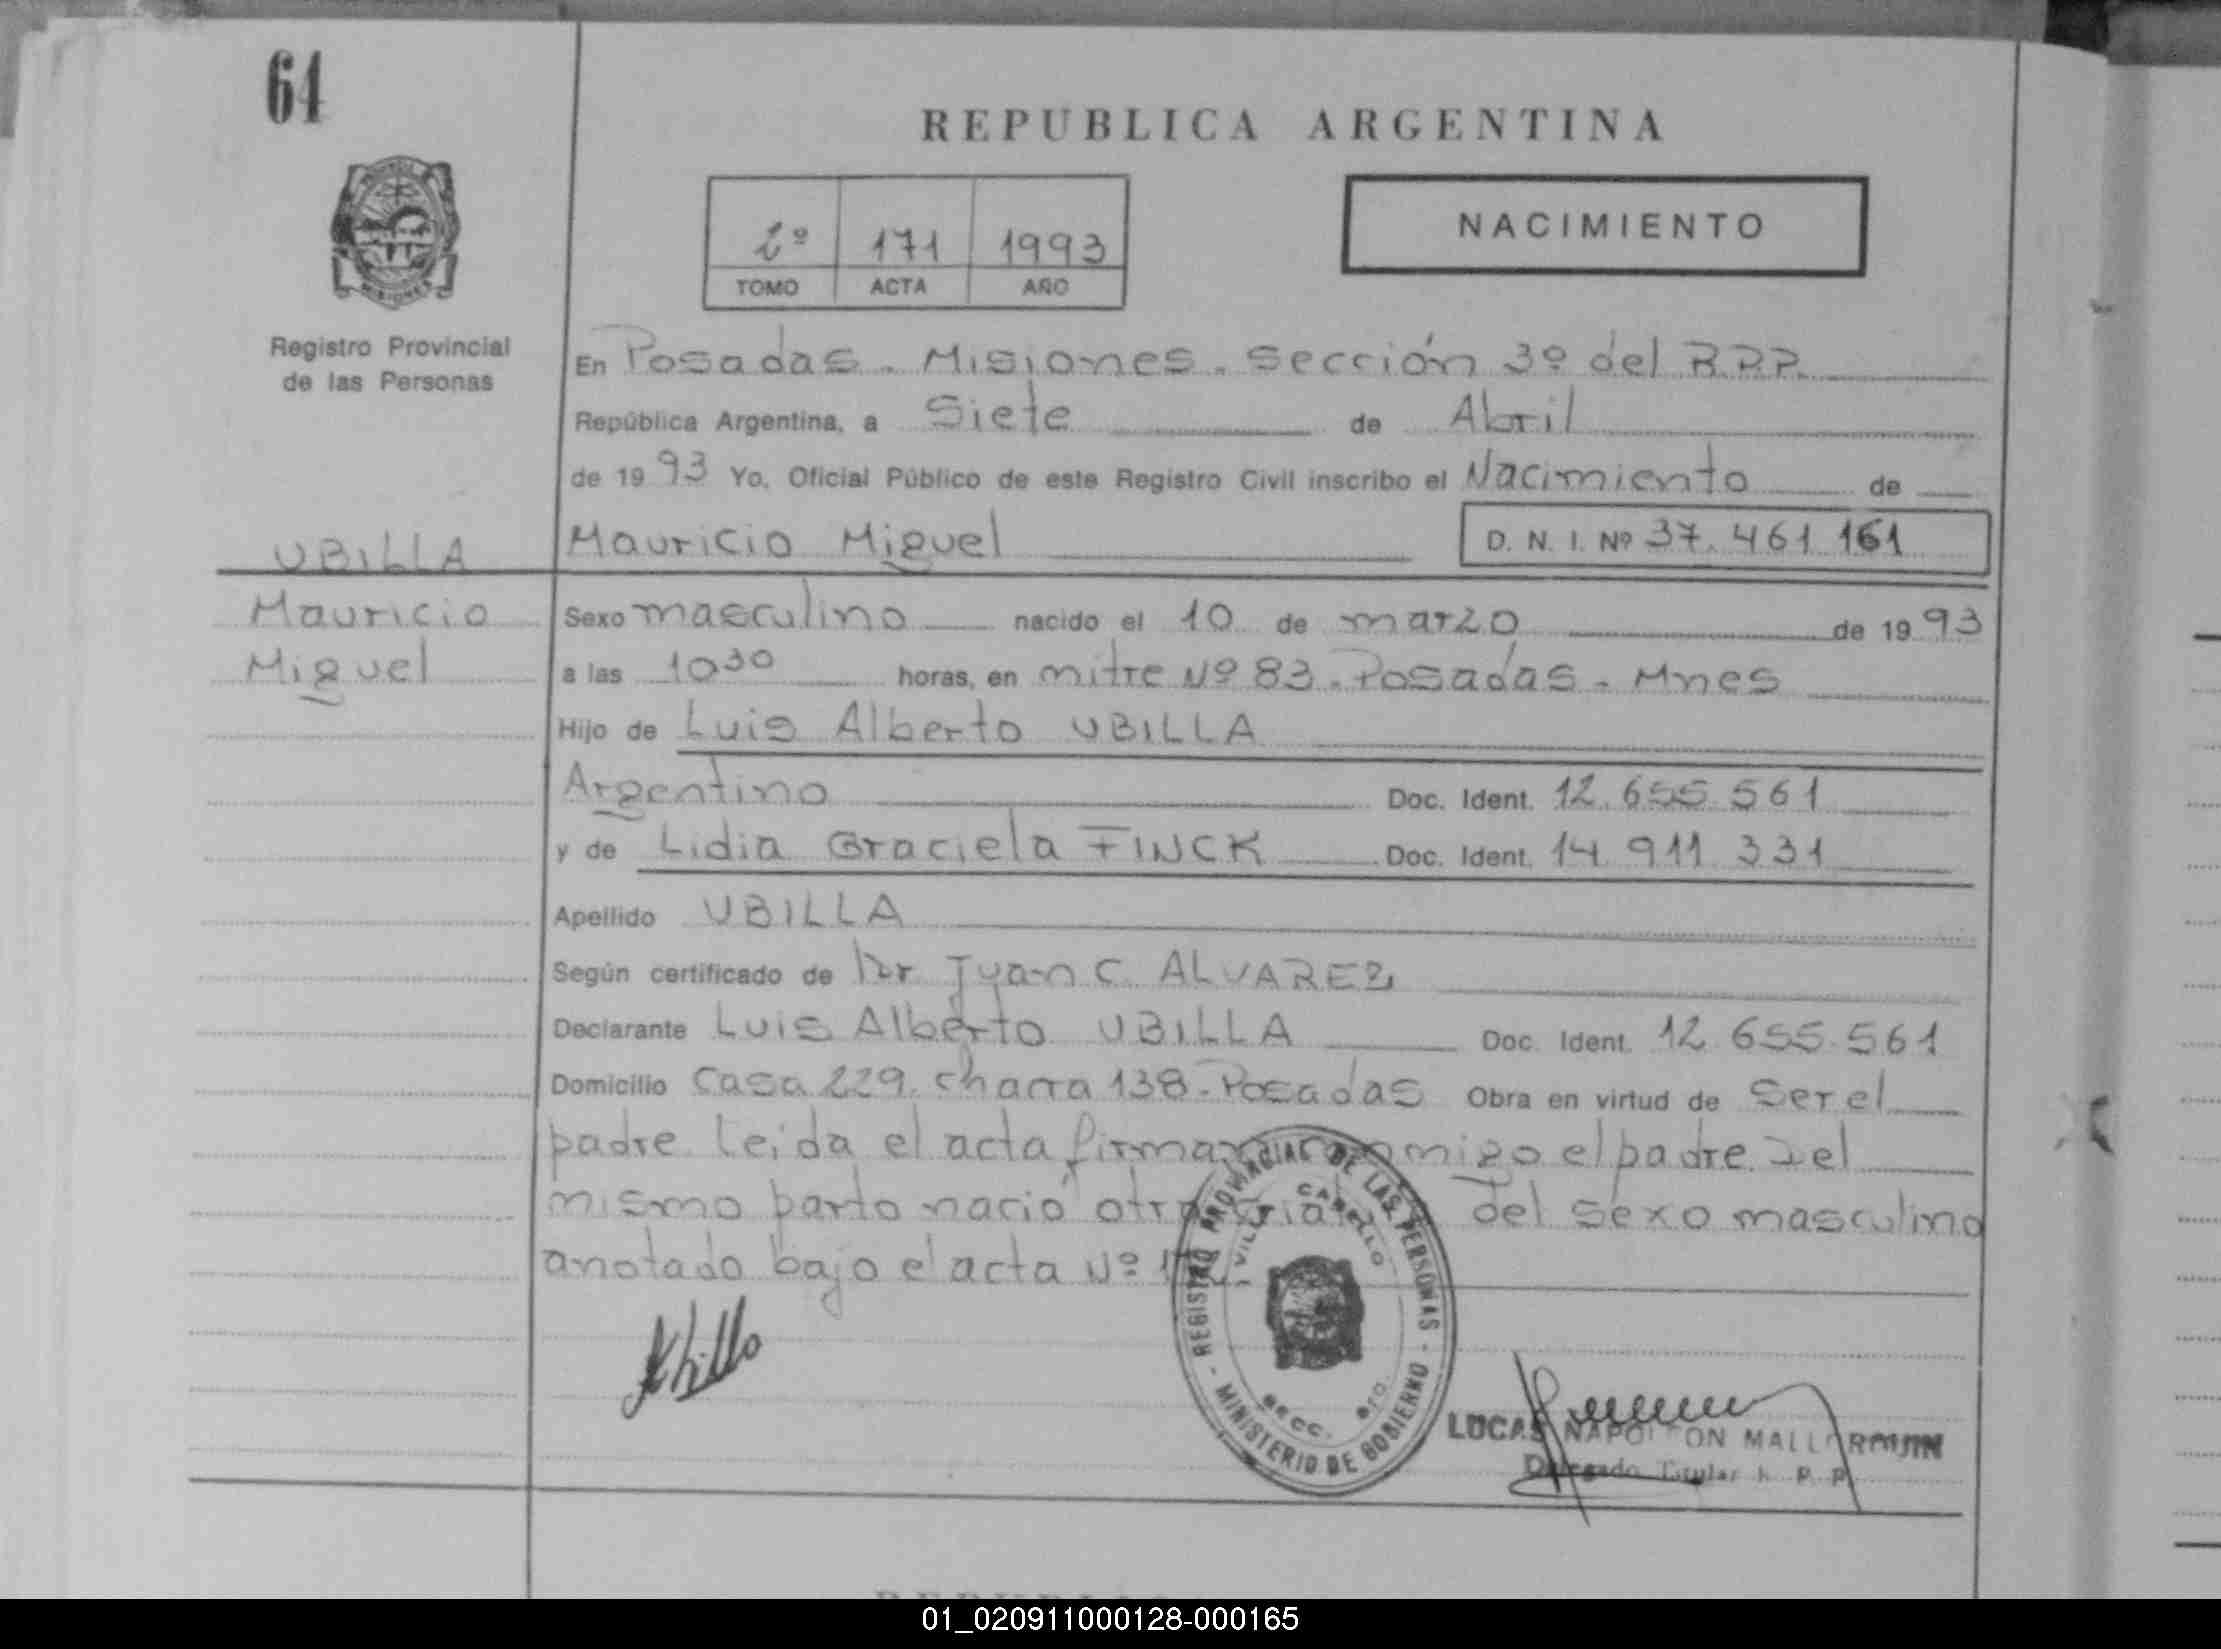 61
REPUBLICA ARGENTINA
2º 171 1993
TOMO ACTA AÑO
NACIMIENTO
MISIONES
Registro Provincial
de las Personas
En Posadas - Misiones - Sección 3º del R.P.P.
República Argentina, a Siete de Abril
de 1993 Yo, Oficial Público de este Registro Civil inscribo el Nacimiento de
UBILLA
Mauricio Miguel
D. N. I. Nº 37.461 161
Mauricio
Miguel
Sexo masculino nacido el 10 de marzo de 1993
a las 10 30 horas, en mitre Nº 83 - Posadas - Mnes
Hijo de Luis Alberto UBILLA
Argentino Doc. Ident. 12.655.561
y de Lidia Graciela FINCK Doc. Ident. 14 911 331
Apellido UBILLA
Según certificado de Dr Juan C. ALVAREZ
Declarante Luis Alberto UBILLA Doc. Ident. 12.655.561
Domicilio Casa 229. chacra 138 - Posadas Obra en virtud de Ser el
padre. Leida el acta firma conmigo el padre. Del
mismo parto nació otra del sexo masculino
anotado bajo el acta Nº
REGISTRO PROVINCIAL DE LAS PERSONAS
- MINISTERIO DE GOBIERNO -
VILLA CABELLO
SECC.
LUCAS NAPOLEON MALLORQUIN
Delegado Titular R. P. P.
01_020911000128-000165